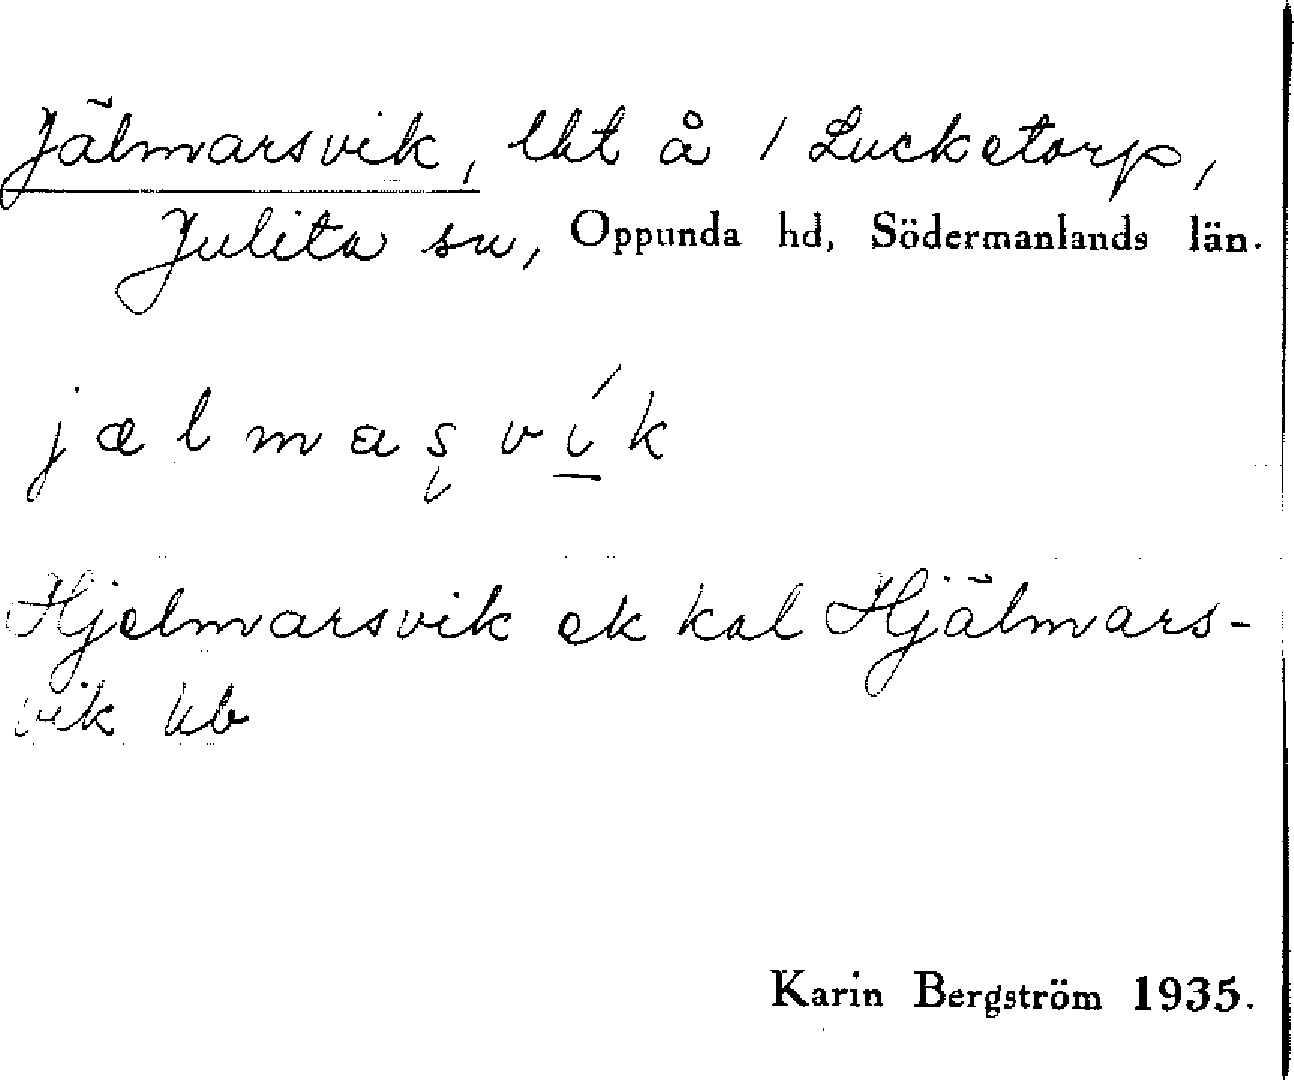 Jälmarsvik, lht å 1 Lucketorp,
Julita sn, Oppunda hd, Södermanlands län.
jælmaʂvík
Hjelmarsvik ek kal Hjälmars-
vik kb
Karin Bergström 1935.